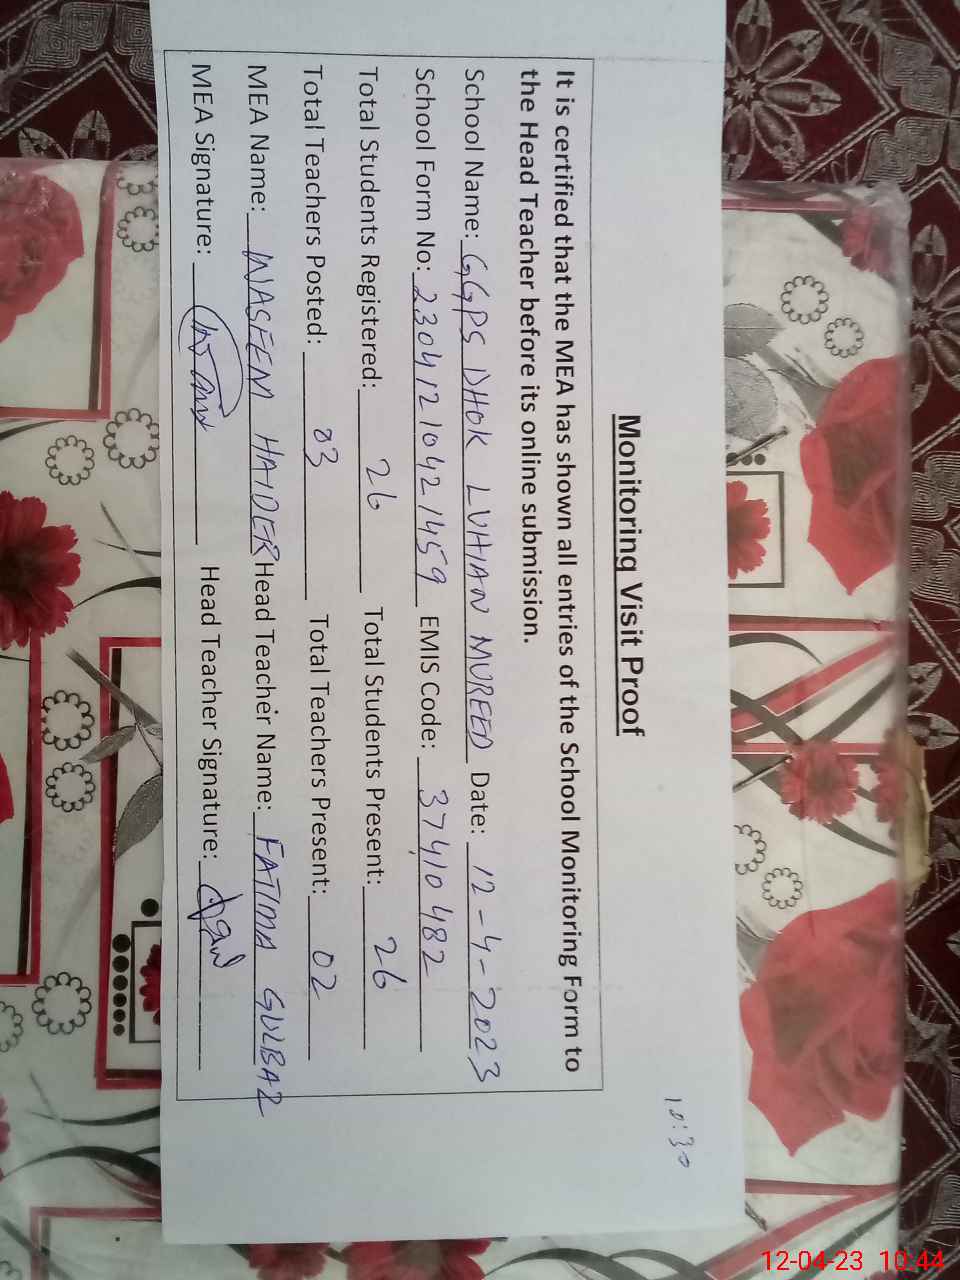 10:30
Monitoring Visit Proof
It is certified that the MEA has shown all entries of the School Monitoring Form to
the Head Teacher before its online submission.
School Name: GGPS DHOK LUHIAN MUREED Date: 12-4-2023
School Form No: 23041210421459 EMIS Code: 37410482
Total Students Registered: 26 Total Students Present: 26
Total Teachers Posted: 03 Total Teachers Present: 02
MEA Name: WASEEM HAIDER Head Teacher Name: FATIMA GULBAZ
MEA Signature: Head Teacher Signature:
12-04-23 10:44